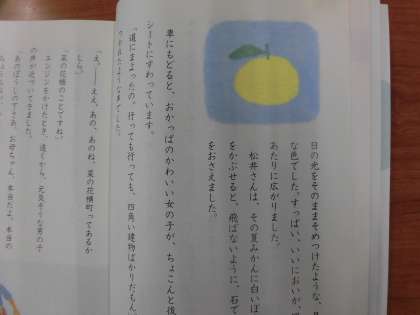 日の光をそのままそめつけたような、
な色でした。すっぱい、いいにおいが、
あたりに広がりました。
松井さんは、その夏みかんに白いぼ
をかぶせると、飛ばないように、石で
をおさえました。
車にもどると、おかっぱのかわいい女の子が、ちょこんと後
シートにすわっています。
「道にまよったの。行っても行っても、四角い建物ばかりだもん。
つかれたような声でした。
「え。――ええ、あの、あのね、菜の花横町ってあるか
しら。」
「菜の花橋のことですね。」
エンジンをかけたとき、遠くから、元気そうな男の子
の声が近づいてきました。
「あのぼうしの下さあ。お母ちゃん、本当だよ。本当の